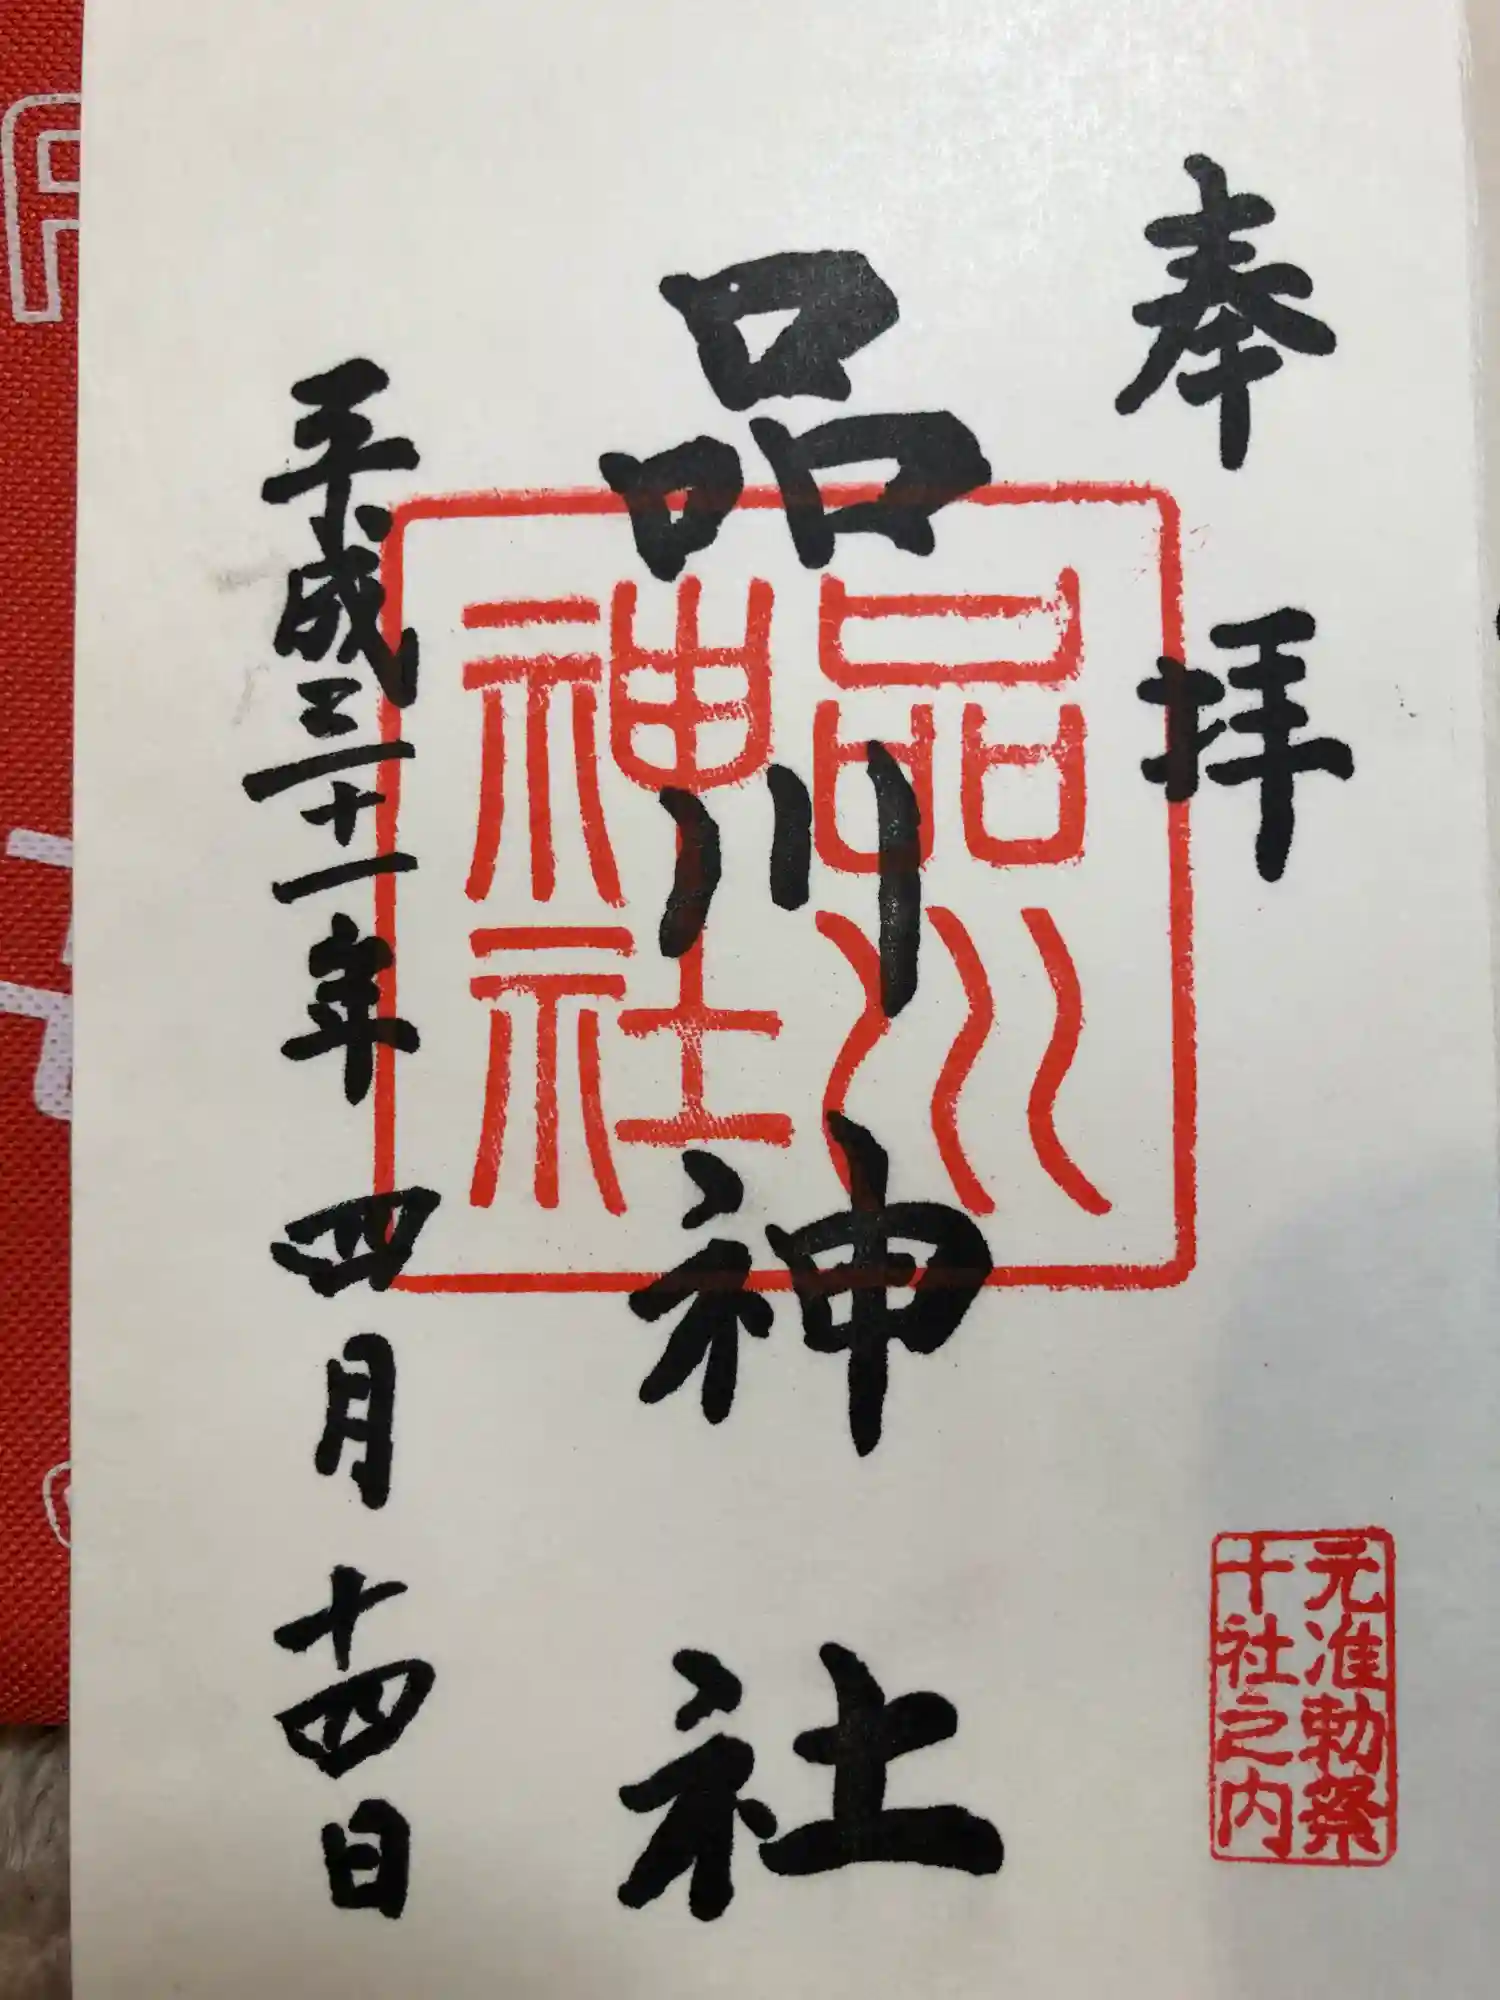 奉拝
品川神社
平成三十一年四月十四日
品川
神社
元准勅祭
十社之内